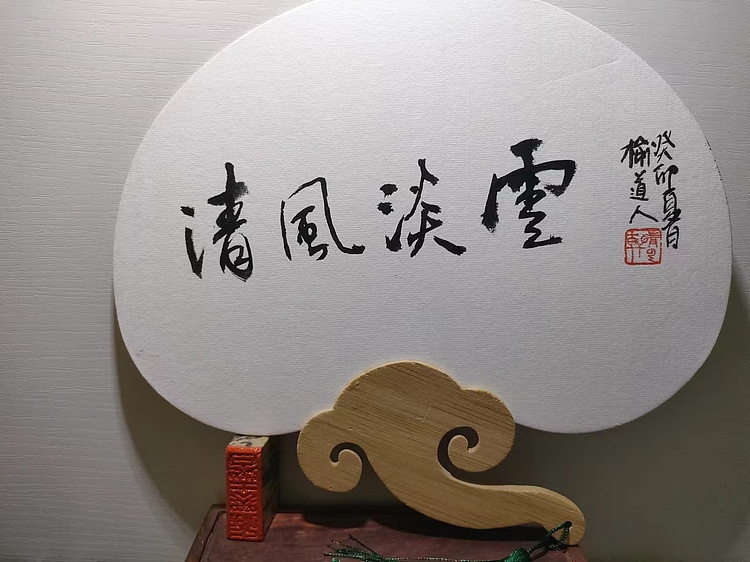 清風淡雲
癸卯夏日
榆道人